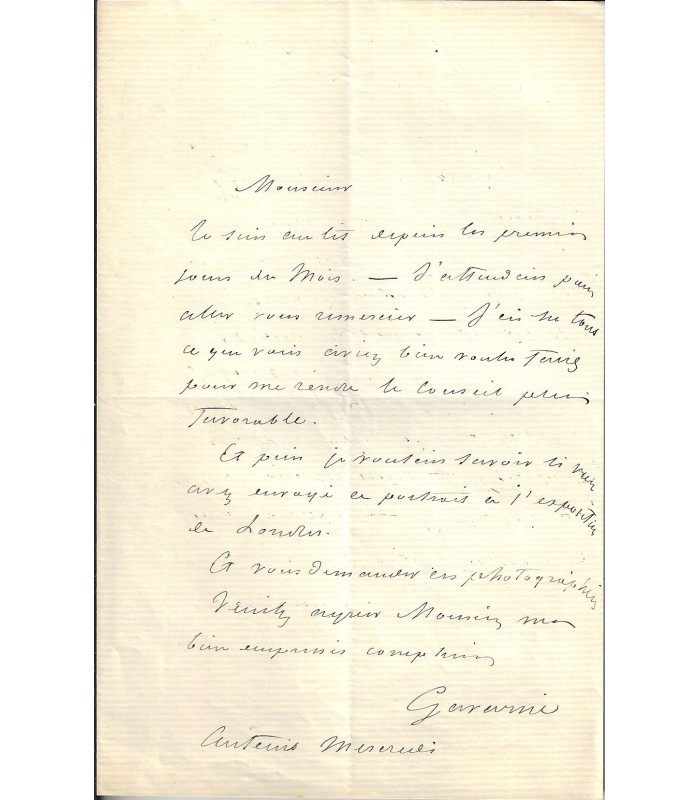 Monsieur
Je suis au lit depuis les premiers
jours du Mois. — J'attendais pour
aller vous remercier — J'ai su tout
ce que vous aviez bien voulu faire
pour me rendre le Conseil plus
favorable.
Et puis je voulais savoir si vous
avez envoyé ce portrait à l'exposition
de Londres.
Et vous demander ces photographies
Veuillez agréer Monsieur mes
bien empressés compliments
Gavarni
Auteuil Mercredi